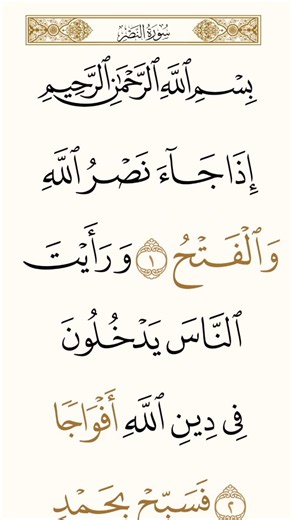 سُورَةُ النَّصْرِ
بِسْمِ ٱللَّهِ ٱلرَّحْمَٰنِ ٱلرَّحِيمِ
إِذَا جَآءَ نَصْرُ ٱللَّهِ
وَٱلْفَتْحُ ١ وَرَأَيْتَ
ٱلنَّاسَ يَدْخُلُونَ
فِى دِينِ ٱللَّهِ أَفْوَاجًا
٢ فَسَبِّحْ بِحَمْدِ